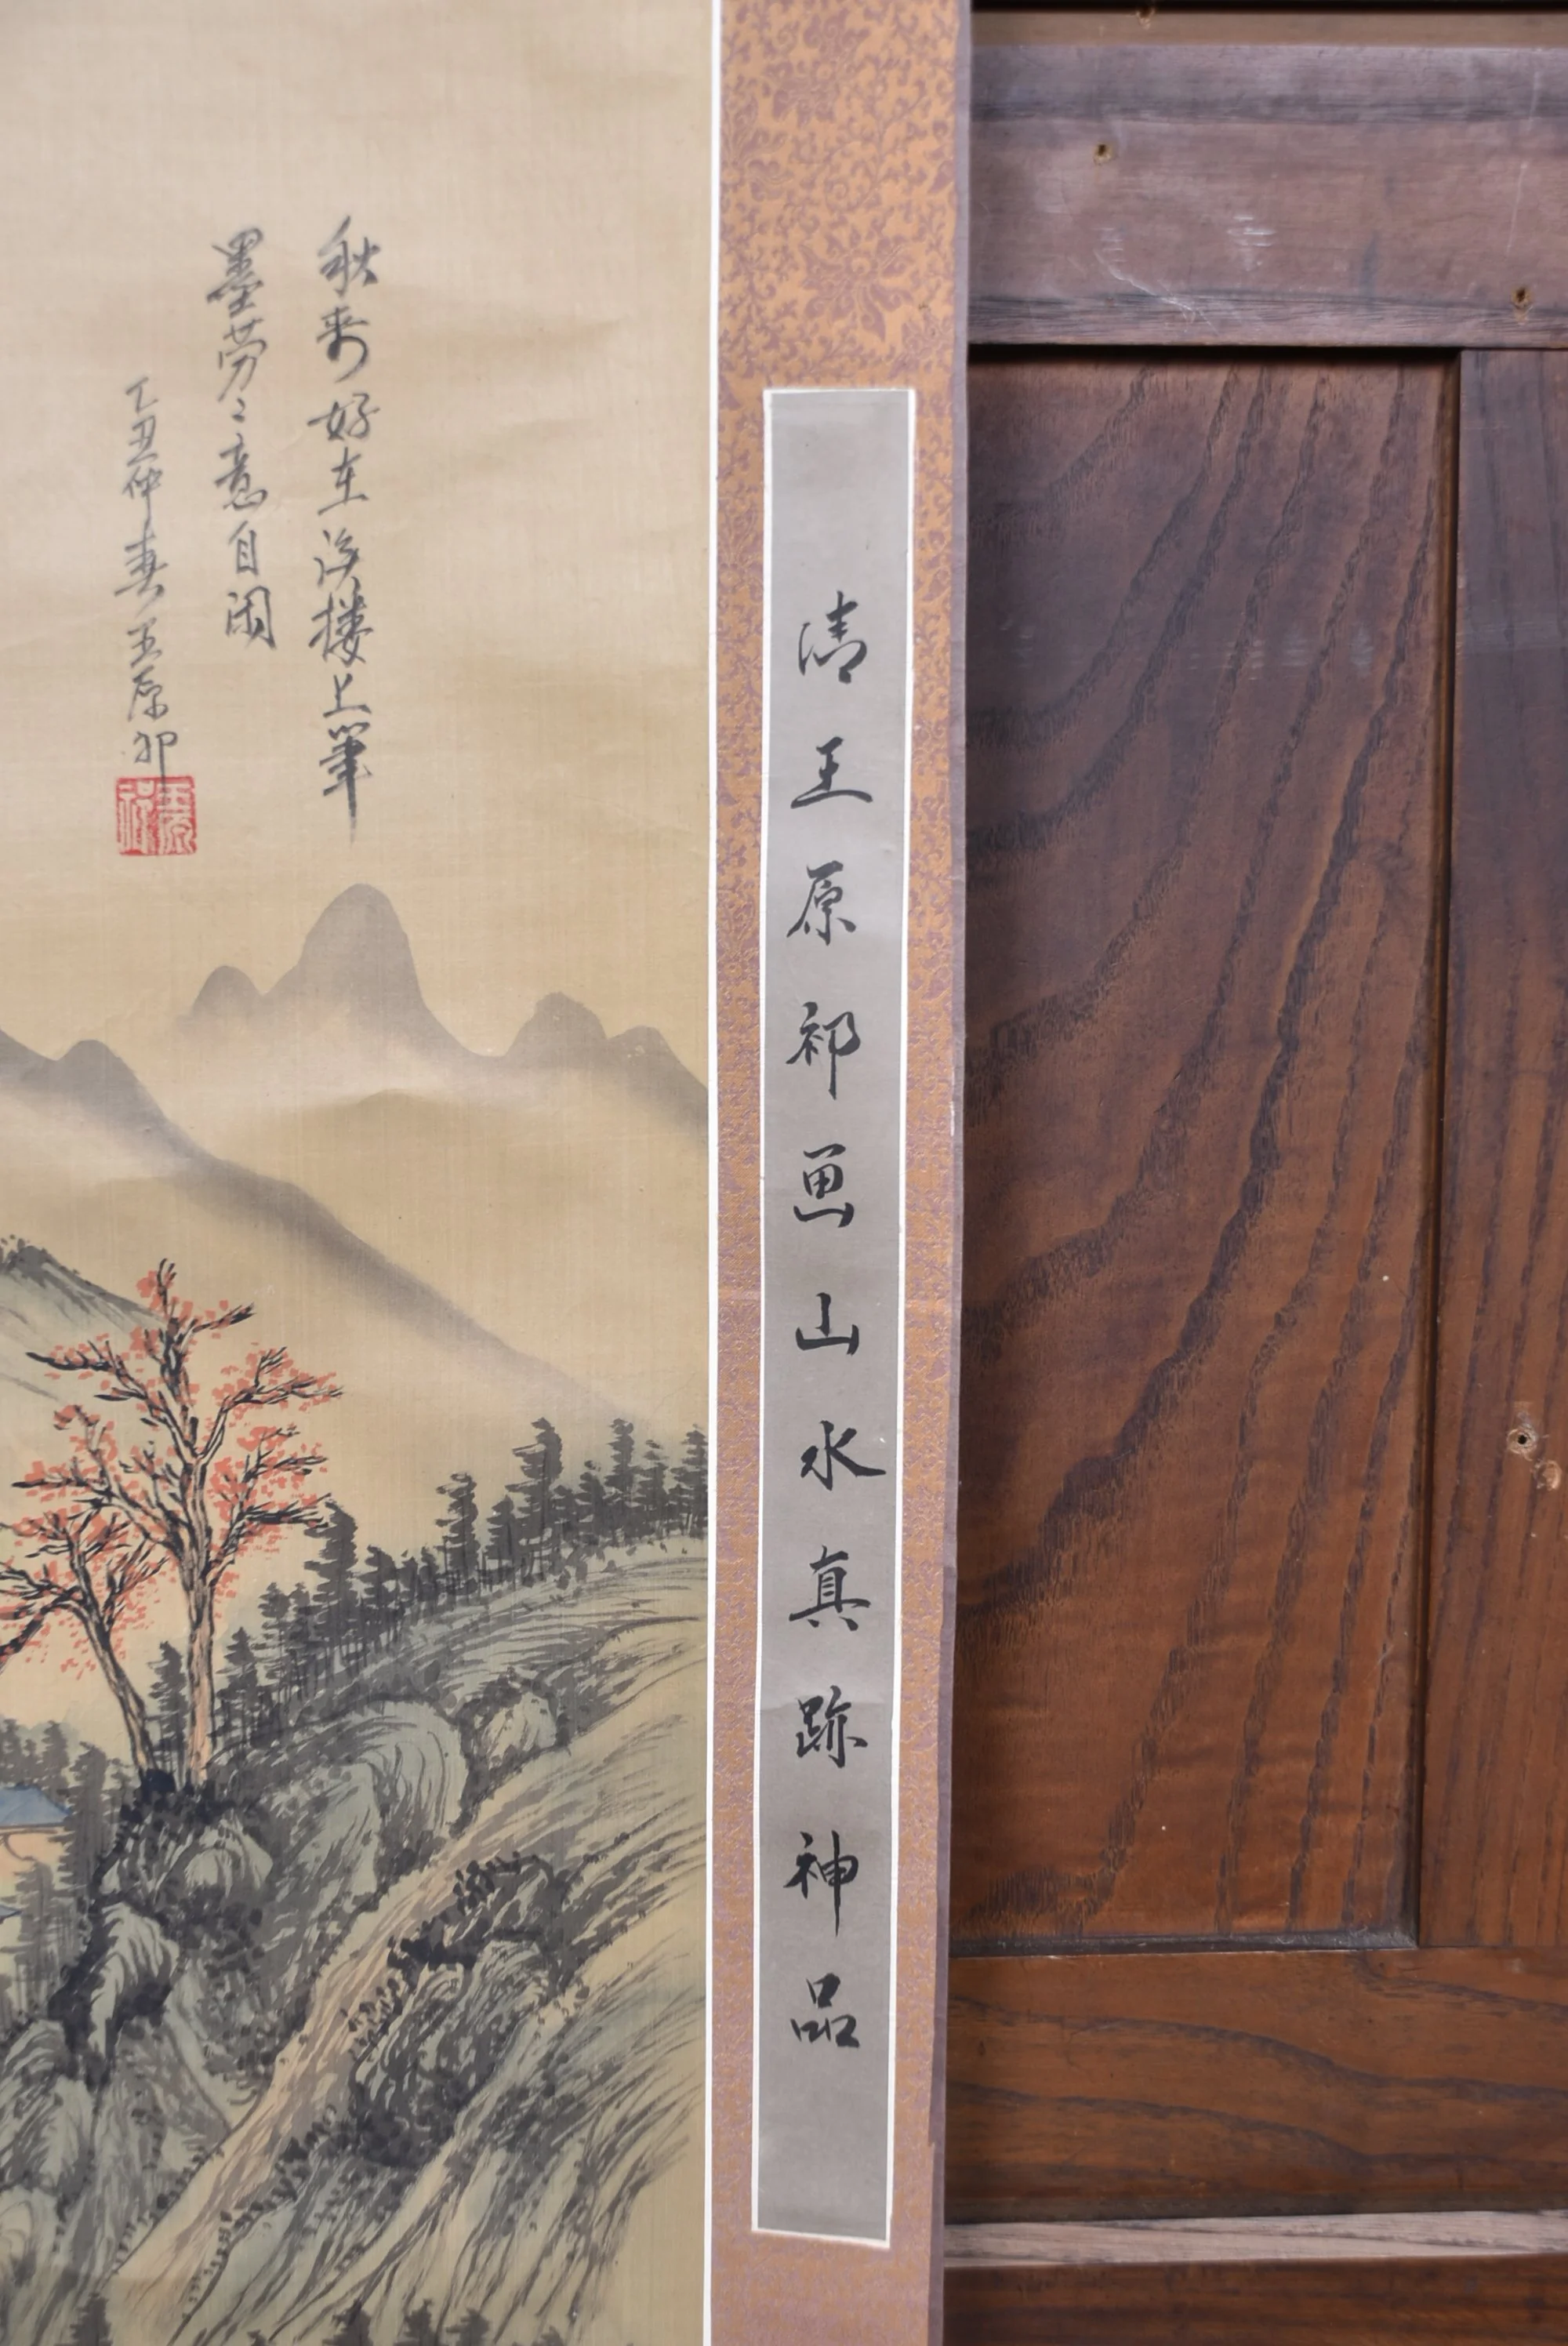 清王原祁画山水真跡神品
秋来好在溪楼上筆
墨劳々意自闲
乙丑仲春王原祁